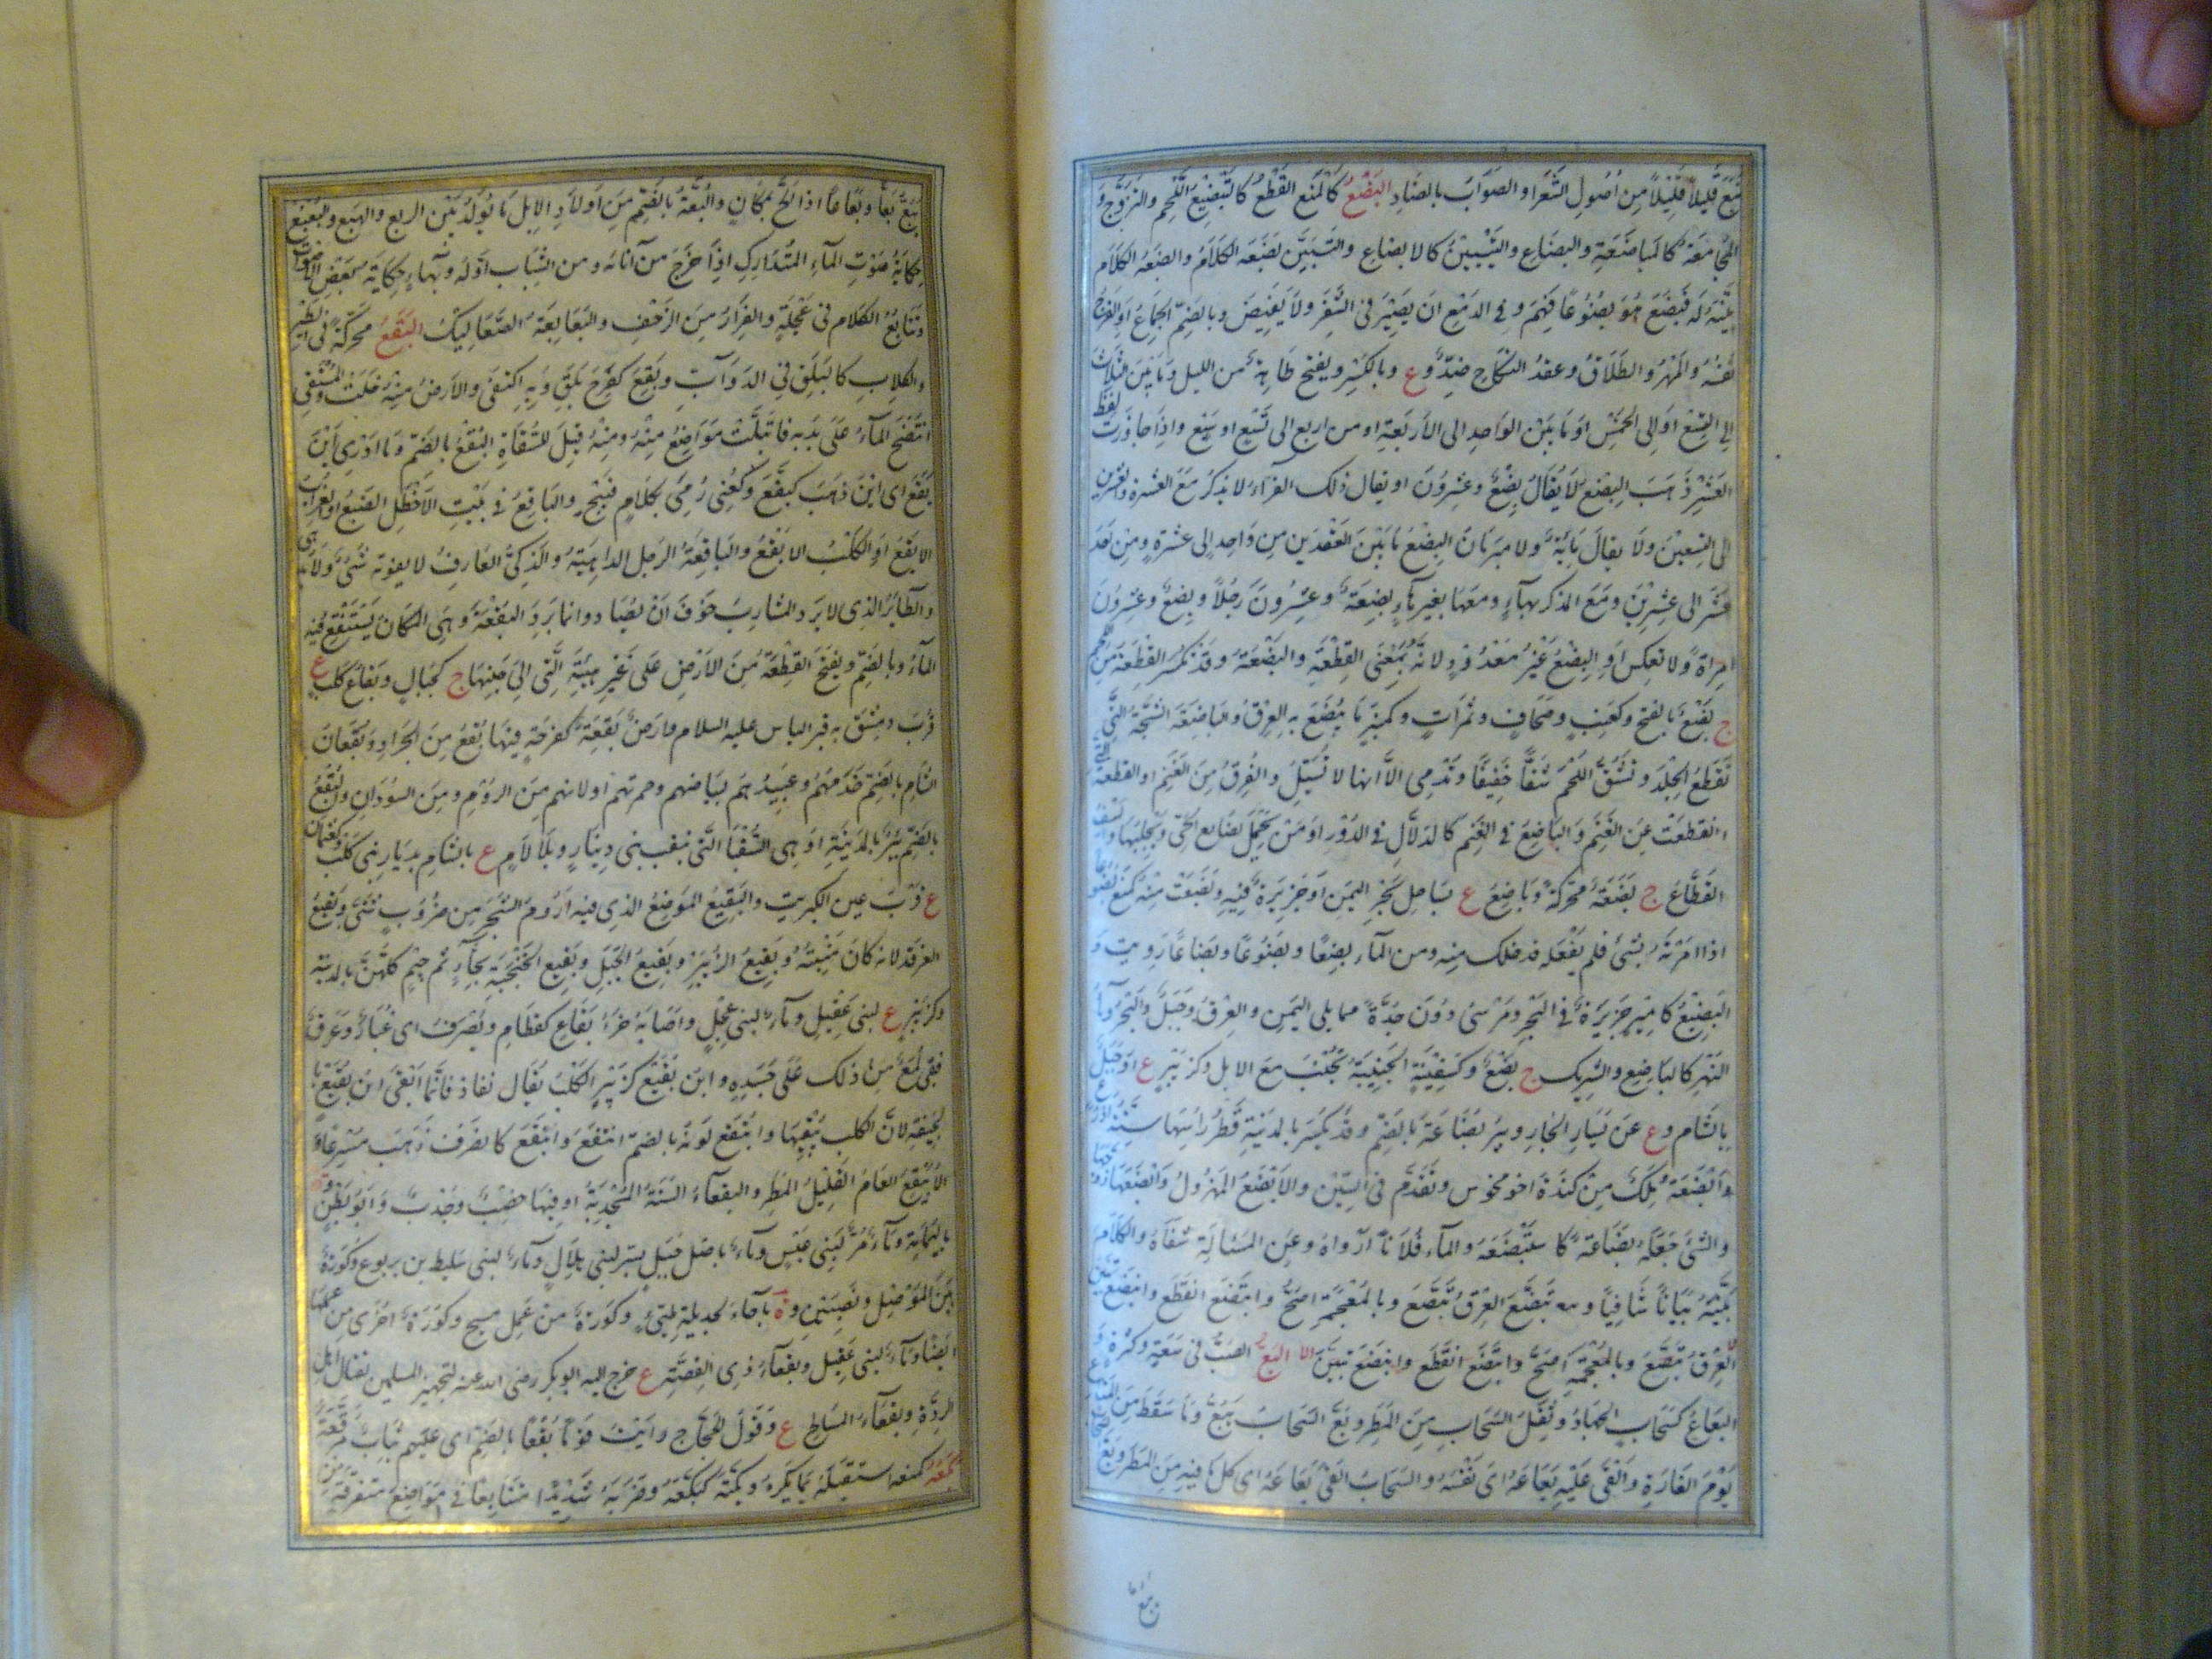 قليلا قليلا من اصول الشعر او الصواب بالضاد البضع كالمنع القطع كالتبضيع اللحم والتزوج و
المجامعة كالمباضعة والبضاع والتبيين كالابضاع والتبين بضعه الكلام وابضعه الكلام
بينه له فبضع هو بضوعا فهم وفي الدمع ان يصير في الشفر ولا يفيض وبالضم الجماع او الفرج
نفسه والمهر والطلاق وعقد النكاح ضد و ع وبالكسر ويفتح طايفة من الليل وما بين ثلاث
الى التسع او الى الخمس او ما بين الواحد الى الاربعة او من اربع الى تسع او سبع واذا جاوزت لفظ
العشر ذهب البضع لا يقال بضع وعشرون او يقال ذلك الفراء لا يذكر مع العشرة والعشرين
الى التسعين ولا يقال مائة ولا مبرمان البضع ما بين العقدين من واحد الى عشرة ومن احد
عشر الى عشرين ومع المذكر بهاء ومعها بغير هاء بضعة وعشرون رجلا وبضع وعشرون
امراة ولا تعكس او البضع غير معدود لانه بمعنى القطعة والبضعة وقد تكسر القطعة من اللحم
ج بضع بالفتح وكعنب وصحاف وتمرات وكمنبر ما يبضع به العرق والباضعة الشجة التي
تقطع الجلد وتشق اللحم شقا خفيفا وتدمي الا انها لا تسيل والفرق من الغنم او القطعة التي
انقطعت عن الغنم والباضع في الغنم كالدلال في الدور او من يحمل بضايع الحي ويجلبها والسيف
القطاع ج بضعة محركة وباضع ع بساحل بحر اليمن او جزيرة فيه وبضعت منه كمنع بضوعا
اذا امرته بشئ فلم يفعله فدخلك منه ومن الماء بضعا وبضوعا وبضاعا رويت و
البضيع كامير جزيرة في البحر ومرسى دون جدة مما يلي اليمن والعرق وجبل والبحر وماء
النهر كالباضع والشريك ج بضع وكسفينة الجنيبة تجنب مع الابل وكزبير ع او جبل
بالشام و ع عن يسار الجار وبير بضاعة بالضم وقد يكسر بالمدينة قطر راسها ستة اذرع
وابضعة ملك من كندة اخو مخوس وتقدم في السين والابضع المهزول وابضعها زوجها
والشئ جعله بضاعة كاستبضعه والماء فلانا ارواه وعن المسئالة شفاه والكلام
بينه بيانا شافيا وتبضع العرق تبضع وبالمعجمة اصح وابتضع انقطع وانبضع تبين
العرق تبضع وبالمعجمة اصح وابتضع انقطع وانبضع تبين البع الصب في سعة وكثرة و
البعاع كسحاب الجهاز وثقل السحاب من المطر وبع السحاب يبع وما سقط من المتاع
يوم الغارة والقى عليه بعاعه اي نفسه والسحاب القى بعاعه اي كل ما فيه من المطر وبع
يبع بعا وبعاعا اذا لح بمكان والبعة بالضم من اولاد الابل ما يولد بين الربع والهبع والبعبع
حكاية صوت الماء المتدارك اذا خرج من انائه ومن الشباب اوله وبهاء حكاية بعض الاصوات
وتتابع الكلام في عجلة والفرار من الزحف والبعابعة الصعاليك البقع محركة في الطير
والكلاب كالبلق في الدواب وبقع كفرح بلق وبه اكتفى والارض منه خلت والمستقي
انتضح الماء على بدنه فابتلت مواضع منه ومنه قيل للسقاة البقع بالضم وما ادري اين
بقع اي اين ذهب كبقع وكعني رمي بكلام قبيح والباقع في بيت الاخطل الضبع او الغراب
الابقع او الكلب الابقع والباقعة الرجل الداهية والذكي العارف لا يفوته شئ ولا يدهى
والطائر الذي لا يرد المشارب خوف ان يصاد وانما يرد البقعة وهي المكان يستنقع فيه
الماء وبالضم ويفتح القطعة من الارض على غير هيئة التي الى جنبها ج كجبال وبقاع كلب ع
قرب دمشق به قبر الياس عليه السلام وارض بقعة كفرحة فيها بقع من الجراد وبقعان
الشام بالضم خدمهم وعبيدهم لبياضهم وحمرتهم او لانهم من الروم ومن السودان والبقع
بالضم بئر بالمدينة او هي السقيا التي بنقب بني دينار وبلا لام ع بالشام بديار بني كلب وكعثمان
ع قرب عين الكبريت والبقيع الموضع الذي فيه اروم الشجر من ضروب شتى وبقيع
الغرقد لانه كان منبته وبقيع الزبير وبقيع الخيل وبقيع الخبجبة بخاء ثم جيم كلهن بالمدينة
وكزبير ع لبني عقيل وماء لبني عجل واصابه خرء بقاع كقطام ويصرف اي غبار وعرق
فبقي لمع من ذلك على جسده وابن بقيع كزبير الكلب يقال تقاذفا بما ابقى ابن بقيع اي
بجيفة لان الكلب يبقيها وابتقع لونه بالضم انتقع وانبقع كانصرف ذهب مسرعا و
الابقع العام القليل المطر والبقعاء السنة المجدبة او فيها خصب وجدب وابو بطن و ة
باليمامة وماء مر لبني عبس وماء باصل لبني هلال وماء لبني سليط بن يربوع وكورة
بين الموصل ونصيبين و ة باجاء لجديلة طيئ وكورة من عمل منبج وكورة اخرى من عملها
ايضا وماء لبني عقيل وبقعاء ذي القصة ع خرج اليه ابو بكر رضي الله عنه لتجهيز المسلمين لقتال اهل
الردة وبقعاء المسالح ع وقول الحجاج رايت قوما بقعا بالضم اي عليهم ثياب مرقعة
بكعه كمنعه استقبله بما يكره وبكته كبكعه وضربه شديدا متتابعا في مواضع متفرقة من